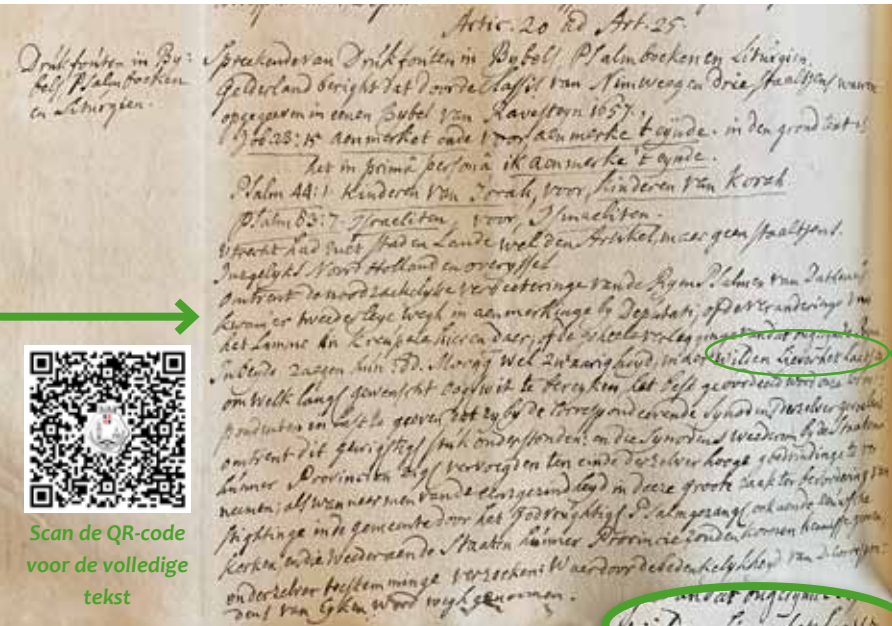 Artic. 20 ad Art. 25.
Drukfouten in By-
bels Psalmboeken
en Liturgien.
Spreekende van Drukfouten in Bybels, Psalmboeken en Liturgien,
Gelderland berigt dat door de Classis van Nimweegen drie staaltjens waren
opgegeeven in eenen Bybel van Ravesteyn 1657.
Job 28: aenmerket ende voor, aenmerke 't eynde. in den grond
het in primâ personâ ik aenmerke 't eynde.
Psalm 44:1 Kinderen van Jorah, voor, Kinderen van Korah
Psalm 83:7 Israeliten, voor, Ismaeliten.
Utrecht had met Stad en Lande wel den Artikel, maer geen staaltjens.
Insgelyks Noord Holland en overyssel
omtrent de noodzaekelyke verbeeteringe van de Rym Psalmen van Dathenus
kwam er tweederleye wegh in aenmerkinge by Deputati, of de veranderinge van
het Lamme en Kreupele hier en daer, of de geheele verlegginge van dat
in beide zaegen hun Ed. Moog wel zwaarigheyd, maer wilden liever het laetste
om welk langs gewenscht oogwit te bereyken het best geoordeeld word onze
pondenten in last te geeven dat zy by de Correspondeerende Synoden derzelver
omtrent dit gewigtigh stuk onderstonden: en die Synodens wederom by de Staaten
hunner Provincien zigh vervoegden ten einde derzelver hooge goedvindinge te
neemen; als wanneer men van de eensgezindheyd in deeze groote zaak ter bevordering van
stightinge in de gemeente door het Godvrughtigh Psalmgezang,
kerken, en die wederom de Staaten hunner Provincie zouden konnen kennisse geeven
onderzelver toestemminge verzoeken: Waerdoor de bedenkelykheyd van D. Corresp:
dens van word wegh genomen.
Scan de QR-code
voor de volledige
tekst